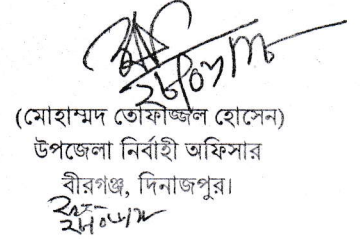 (মোহাম্মদ তোফাজ্জল হোসেন)
উপজেলা নির্বাহী অফিসার
বীরগঞ্জ, দিনাজপুর।